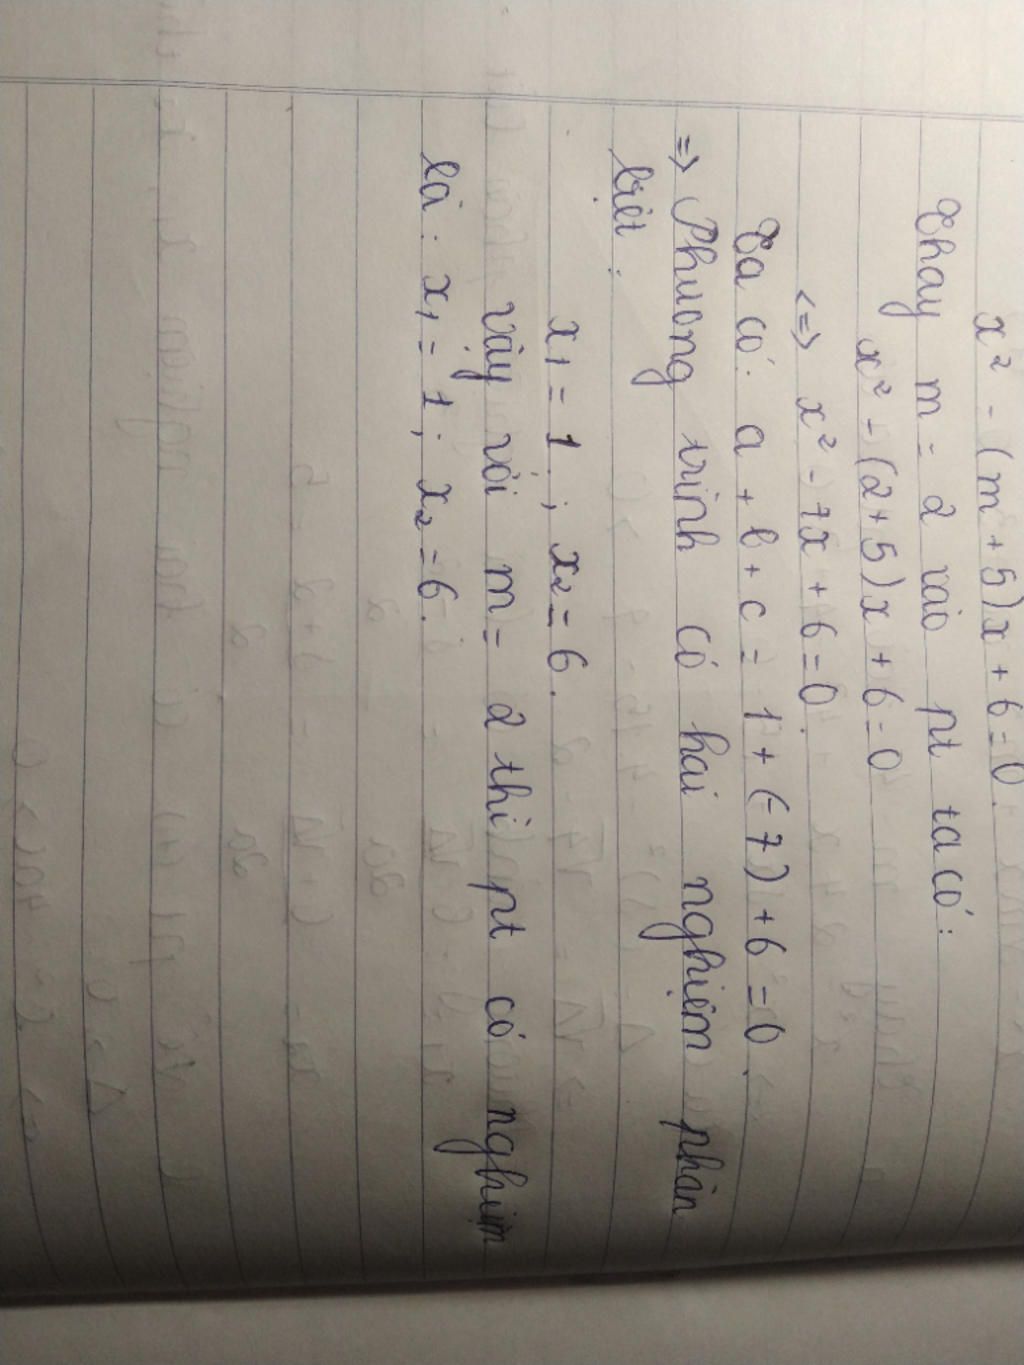 x² - (m + 5)x + 6 = 0.
Thay m = 2 vào pt ta có:
x² - (2+5)x + 6 = 0
<=> x² - 7x + 6 = 0.
Ta có: a + b + c = 1 + (-7) + 6 = 0.
=> Phương trình có hai nghiệm phân
biệt:
x₁ = 1 ; x₂ = 6.
Vậy với m = 2 thì pt có nghiệm
là: x₁ = 1; x₂ = 6.